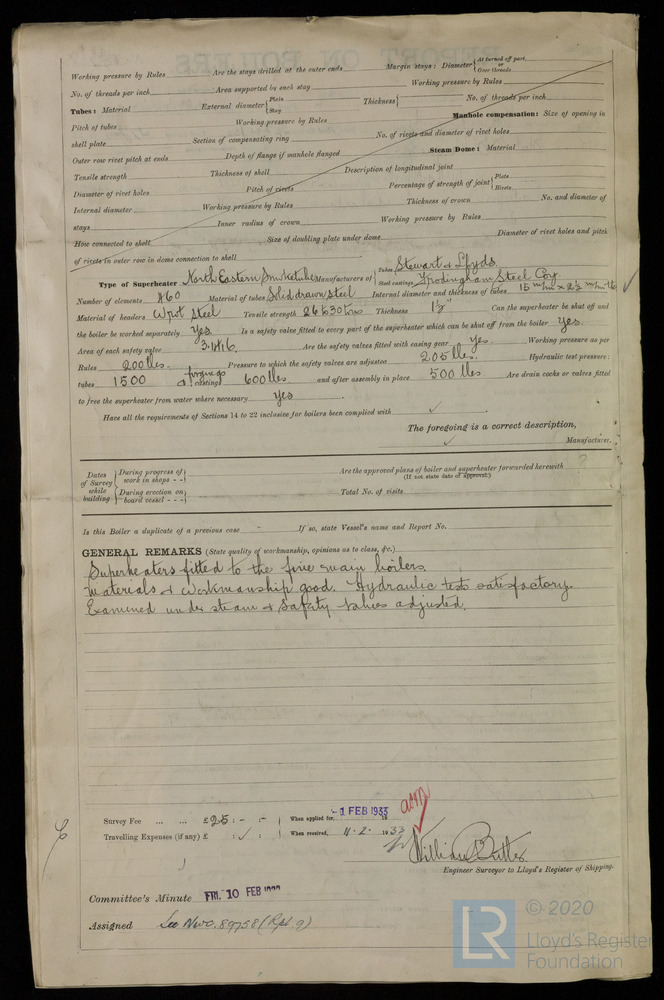 Working pressure by Rules Are the stays drilled at the outer ends Margin stays: Diameter { At turned off part, or Over threads
No. of threads per inch Area supported by each stay Working pressure by Rules
Tubes: Material External diameter { Plain Stay Thickness { No. of threads per inch
Pitch of tubes Working pressure by Rules Manhole compensation: Size of opening in
shell plate Section of compensating ring No. of rivets and diameter of rivet holes
Outer row rivet pitch at ends Depth of flange if manhole flanged Steam Dome: Material
Tensile strength Thickness of shell Description of longitudinal joint
Diameter of rivet holes Pitch of rivets Percentage of strength of joint { Plate Rivets
Internal diameter Working pressure by Rules Thickness of crown No. and diameter of
stays Inner radius of crown Working pressure by Rules
How connected to shell Size of doubling plate under dome Diameter of rivet holes and pitch
of rivets in outer row in dome connection to shell
Type of Superheater North Eastern Smoketube Manufacturers of { Tubes Stewart & Lloyds Steel castings Frodingham Steel Coy
Number of elements 460 Material of tubes Solid drawn Steel Internal diameter and thickness of tubes 15 m/m x 2½ m/m thk
Material of headers Wrot Steel Tensile strength 26 to 30 tons Thickness 1⅛" Can the superheater be shut off and
the boiler be worked separately Yes Is a safety valve fitted to every part of the superheater which can be shut off from the boiler Yes.
Area of each safety valve 3.1416. Are the safety valves fitted with easing gear Yes Working pressure as per
Rules 200 lbs. Pressure to which the safety valves are adjusted 205 lbs. Hydraulic test pressure:
tubes 1500 forgings & castings 600 lbs and after assembly in place 500 lbs Are drain cocks or valves fitted
to free the superheater from water where necessary Yes
Have all the requirements of Sections 14 to 22 inclusive for boilers been complied with ✓
The foregoing is a correct description,
✓ Manufacturer.
Dates of Survey while building { During progress of work in shops - - Are the approved plans of boiler and superheater forwarded herewith ?
(If not state date of approval.)
{ During erection on board vessel - - - Total No. of visits
Is this Boiler a duplicate of a previous case - If so, state Vessel's name and Report No.
GENERAL REMARKS (State quality of workmanship, opinions as to class, &c.)
Superheaters fitted to the five main boilers.
Materials & Workmanship good. Hydraulic tests satisfactory.
Examined under steam & Safety valves adjusted.
Survey Fee ... ... £25 : - : - When applied for, -1 FEB 1933 19
Travelling Expenses (if any) £ : ✓ : When received, 11.2. 1933
William Butler
Engineer Surveyor to Lloyd's Register of Shipping.
Committee's Minute FRI. 10 FEB 1933
Assigned See Nwc. 89758 (Rpt. 9)
LR © 2020
Lloyd's Register
Foundation